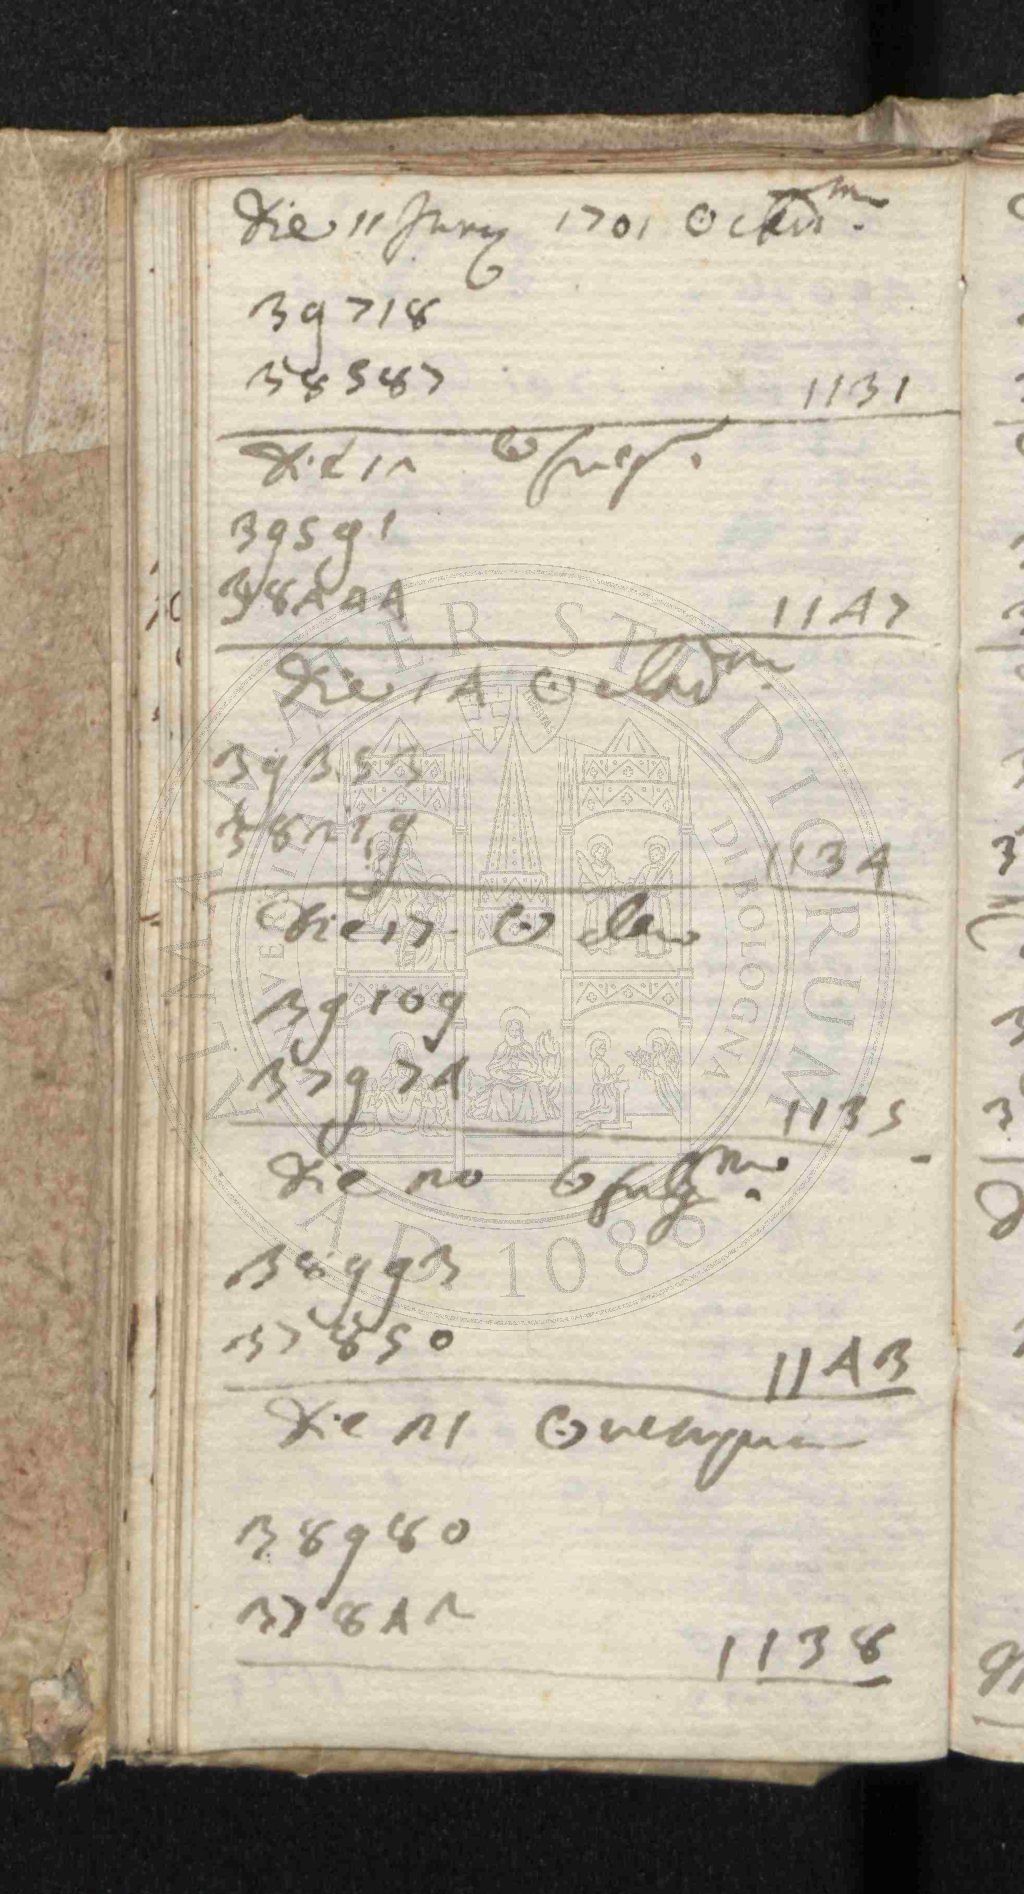 Die 11 Juny 1701 ☉
39718
38587 1131
Die 12 ☉
39591
38444 1147
Die 14 ☉
39353
38219 1134
Die 17. ☉
39109
37974 1135
Die 20 ☉
38993
37850 1143
Die 21 ☉
38980
37842 1138
ALMA MATER STUDIORUM
A.D. 1088
UNIVERSITÀ DI BOLOGNA